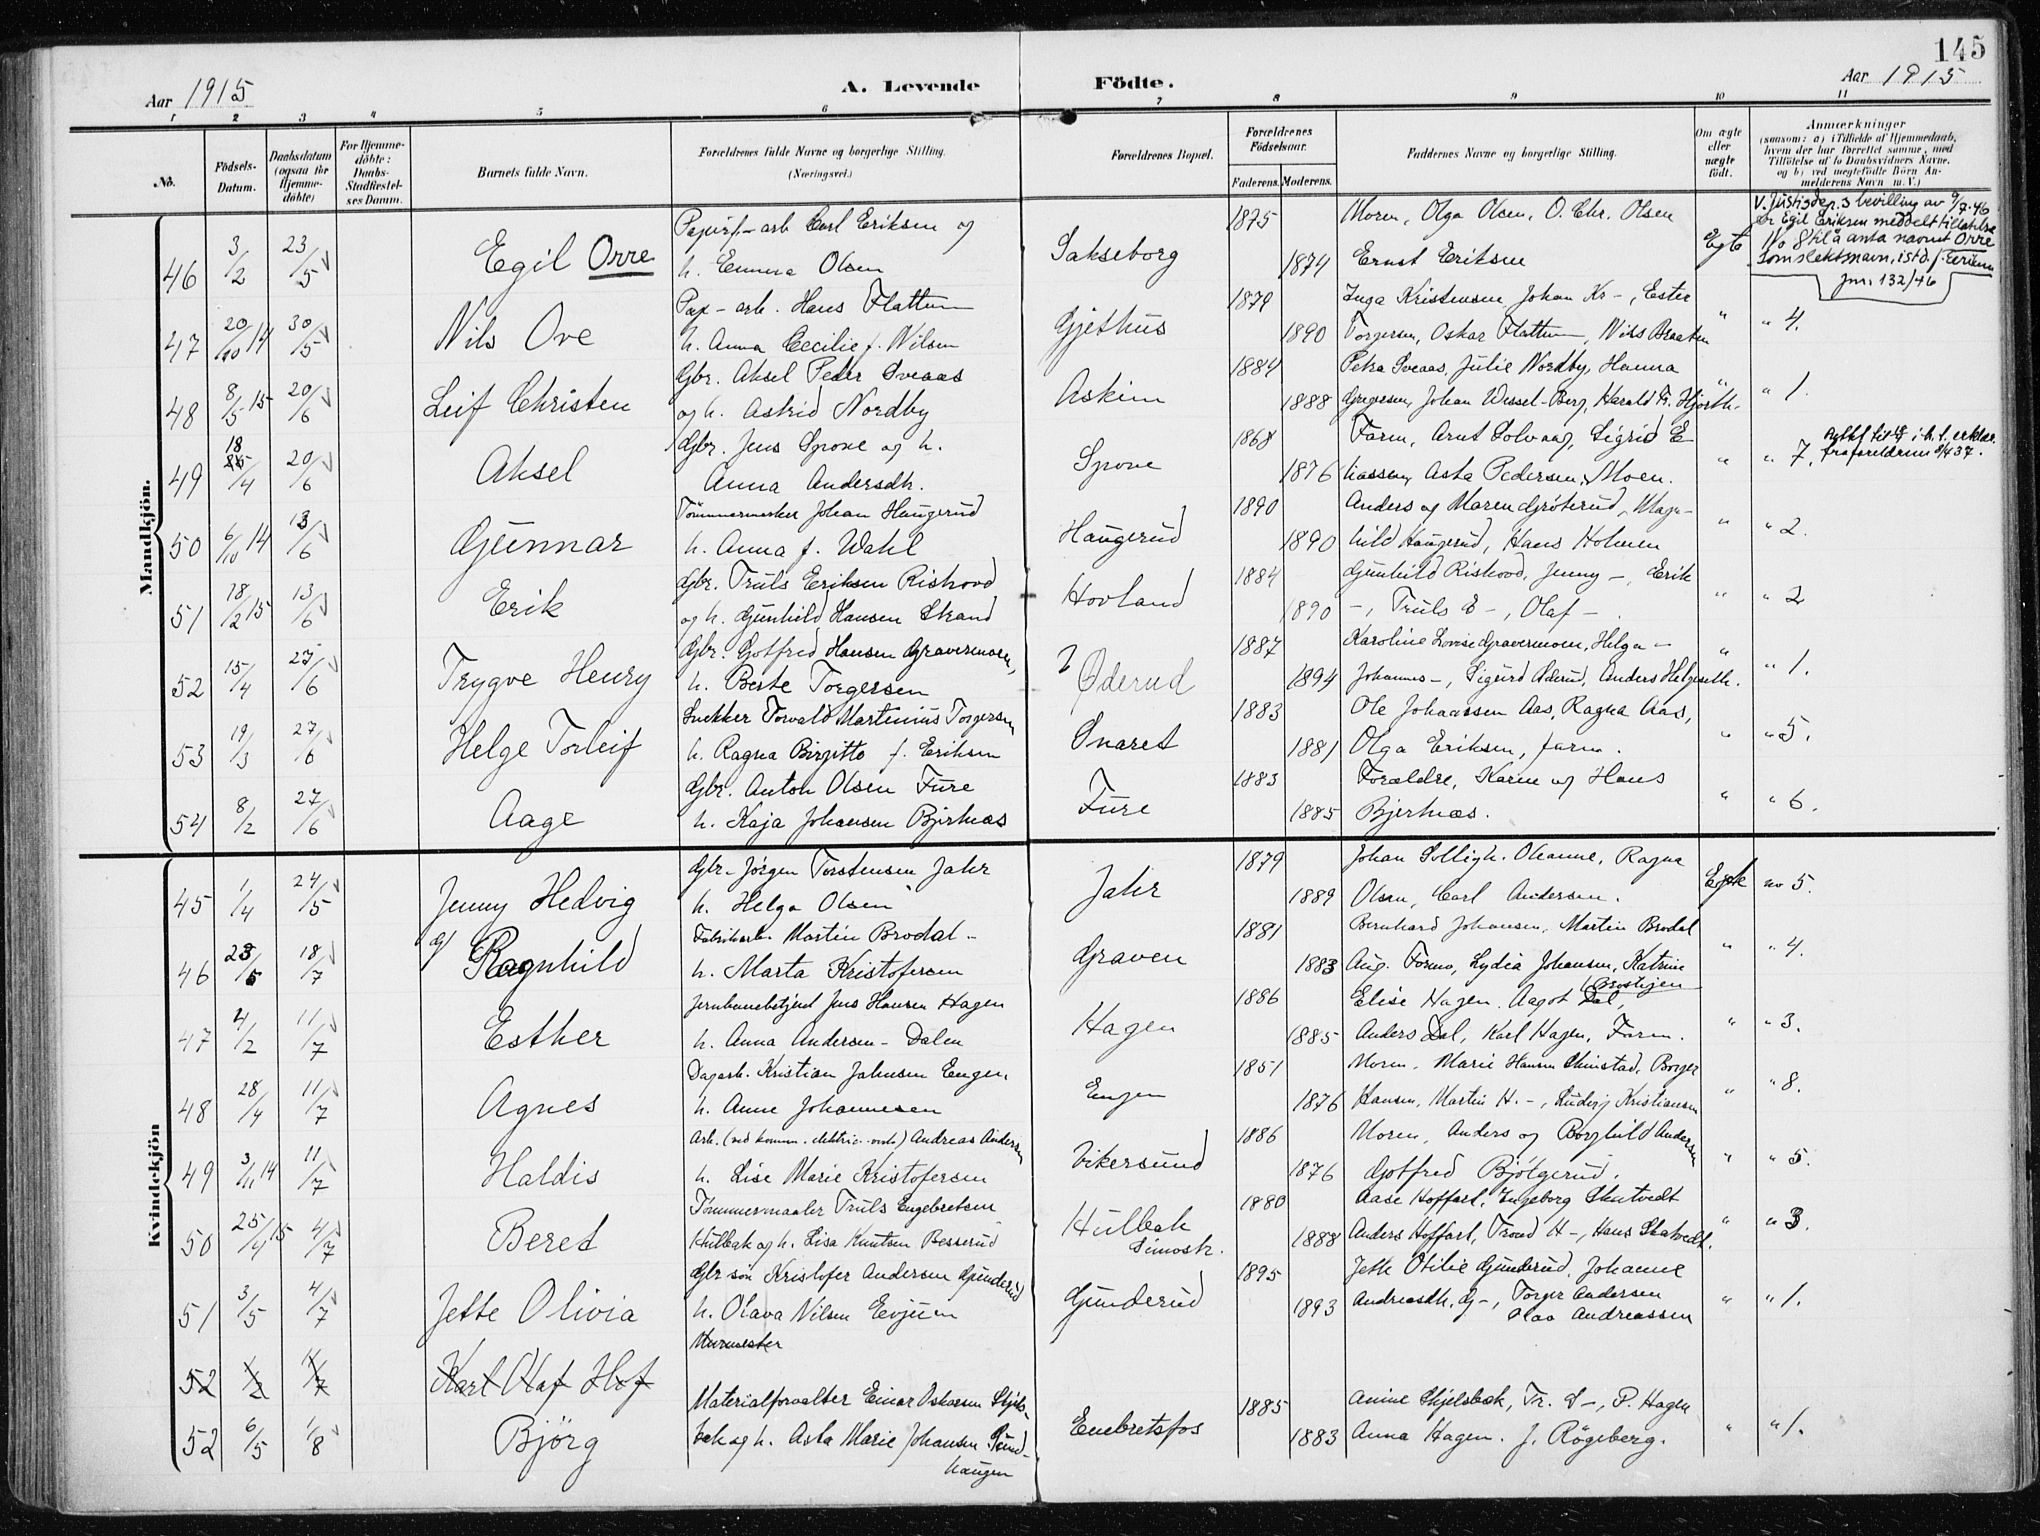 145
Aar 1915 A. Levende Födte. Aar 1915
1 2 3 4 5 6 7 8 9 10 11
No. Födsels-Datum. Daabsdatum (ogsaa for Hjemme-döbte) For Hjemme-döbte: Daabs-Stadfæstel-ses Datum. Barnets fulde Navn. Forældrenes fulde Navne og borgerlige Stilling. (Næringsvei.) Forældrenes Bopæl. Forældrenes Födselsaar. Faderens. Moderens. Faddernes Navne og borgerlige Stilling. Om ægte eller uægte födt. Anmærkninger (saasom: a) i Tilfælde af Hjemmedaab, hvem der har forrettet samme, med Tilföielse af to Daabsvidners Navne, og b) ved uegtefödte Börn An-melderens Navn m. V.)
Mandkjön.
Papirf- arb Carl Eriksen og 1875 Moren, Olga Olsen, O. Chr. Olsen V. Justisdep.s bevilling av 9/7-46
46 3/2 23/5 Egil Orre h. Emma Olsen Sakseborg 1874 Ernst Eriksen Egte er Egil Eriksen meddelt tillatelse
No 8 til å anta navnet Orre
som slektsnavn, istd. f. Eriksen
jnr. 132/46
Pap- arb. Hans Flattum 1879 Inga Kristensen Johan Kr -, Ester
47 20/10 14 30/5 Nils Ove h. Anna Cecilie f. Nilsen Gjethus 1890 Torgersen, Oskar Flattum, Nils Braaten " " 4.
Gbr. Aksel Peder Sveaas 1884 Petra Sveaas, Julie Nordby, Hanna
48 8/5-15 20/6 Leif Christen og h. Astrid Nordby Askim 1888 Gregersen, Johan Wessel-Berg, Harald Fr. Hjorth. " " 1.
Gbr. Jens Sprone og h. 1868 Farm, Arnt Solvaag, Sigrid E
49 18/4 20/6 Aksel Anna Andersdh. Sprone 1876 Aasen, Asta Pedersen, Moen. " " 7.
fra foreldrene 8/4 37.
Tömmermerker Johan Haugerud 1890 Anders og Maren Gröterud, Magn-
50 6/10 14 13/6 Gunnar h. Anna f. Wahl Haugerud 1890 hild Haugerud, Hans Holmen " " 2.
Gbr. Truls Eriksen Riskood 1884 Gunhild Riskood, Jenny -, Erik
51 18/2 15 13/6 Erik og h. Gunhild Hansen Strand Hovland 1890 -, Truls E -, Olaf - " " 2
Gbr. Gotfred Hansen Gravermoen, 1887 Karoline Lovise Gravermoen, Helga -
52 15/4 27/6 Trygve Henry h. Berte Torgersen Öderud 1894 Johannes -, Sigurd Öderud, Anders Helgeseth. " " 1.
Snekker Torvald Martinius Torgersen 1883 Ole Johansen Aas, Ragna Aas,
53 19/3 27/6 Helge Torleif h. Ragna Birgitte f. Eriksen Snaret 1881 Olga Eriksen, farm. " " 5.
Gbr. Anton Olsen Fure 1883 Forældre, Karen og Hans
54 8/2 27/6 Aage h. Kaja Johansen Bjertnæs Fure 1885 Bjertnæs. " " 6.
Kvindekjön
Gbr. Jörgen Torstensen Jahr 1879 Johan Solligh. Oleanne, Ragna
45 1/4 24/5 Jenny Hedvig h. Helga Olsen Jahr 1889 Olsen, Carl Andersen. Egte no 5.
Fabrikarb Martin Brodal - 1881 Bernhard Johansen, Martin Brodal
46 23/5 18/7 Ragnhild h. Marta Kristofersen Graven 1883 Aug. Formo, Lydia Johansen, Katrine " " 4.
Brostigen
Jernbanebetjent Jens Hansen Hagen 1886 Elise Hagen. Aagot Dal,
47 4/2 11/7 Esther h. Anna Andersen - Dalen Hagen 1885 Anders Dal, Karl Hagen, Farm. " " 3.
Dagarb. Kristian Johnsen Engen, 1851 Moren, Marie Hansen Skinstad, Borger
48 28/4 11/7 Agnes h. Anne Johannesen Engen 1876 Hansen, Martin H. -, Ludvig Kristiansen " " 8.
Arb. (ved komm. elektric. verk) Andreas Andersen 1886 Moren, Anders og Borghild Andersen
49 3/11 14 11/7 Haldis h. Lise Marie Kristofersen Vikersund 1876 Gotfred Bjölgerud. " " 5.
Tömmermaaler Truls Engebretsen 1880 Aase Hoffart, Ingeborg Skutvedt
50 25/4 15 4/7 Beret Hulbak og h. Lisa Knutsen Besserud Hulbak Simostr. 1888 Anders Hoffart, Trond H-, Hans Skatvedt. " " 3.
Gbr sön Kristofer Andersen Gunderud 1895 Jette Otilie Gunderud, Johanne
51 3/5 4/7 Jette Olivia h. Olava Nilsen Evjuen Gunderud 1893 Andreasdh. G-, Torger Andersen " " 1.
Olaa Andreassen
Murmester
52 1/2 1/7 Karl Olaf Hof
Materialforvalter Einar Oskarsen Skjels- 1885 Anine Skjelsbek, Tr. S-, P. Hagen
52 6/5 1/8 Björg bek og h. Asta Marie Johansen Sund-haugen Enebretsfos 1883 Anna Hagen. J. Rögeberg. " " 1.